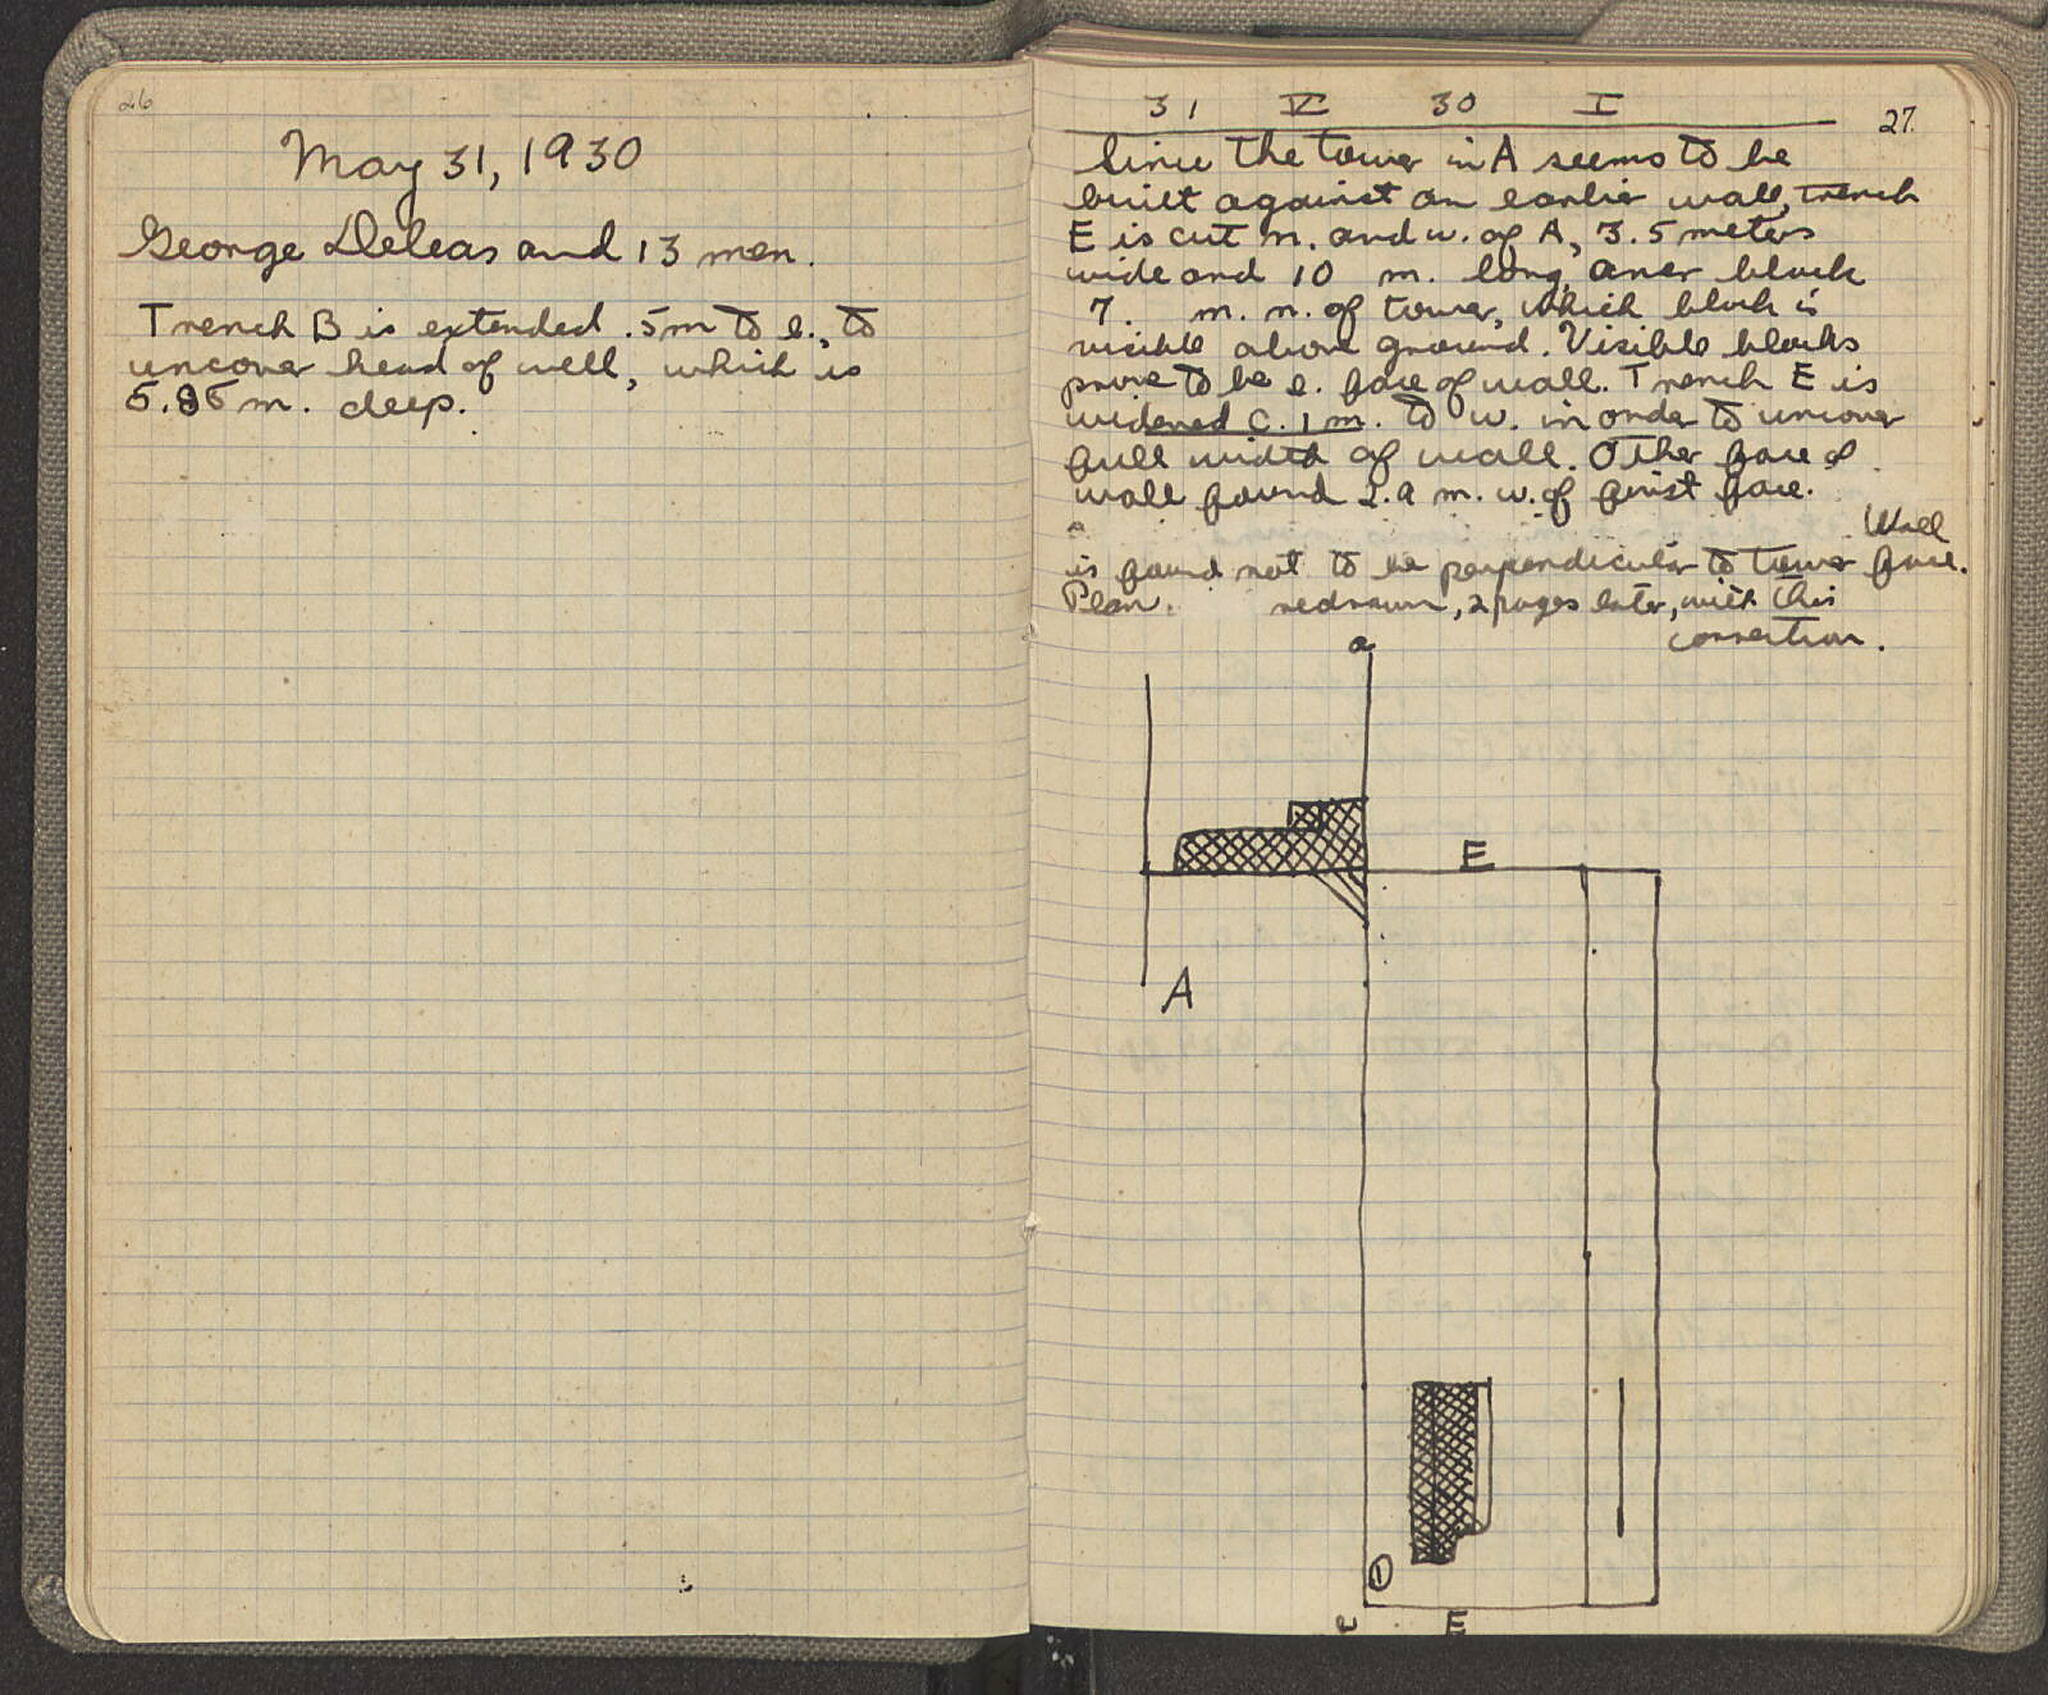 26
May 31, 1930
George Deleas and 13 men.
Trench B is extended .5m to e., to
uncover head of well, which is
5.95 m. deep.
31 V 30 I
27.
Since the tower in A seems to be
built against an earlier wall, trench
E is cut n. and w. of A, 3.5 meters
wide and 10 m. long, over block
7. m. n. of tower, which block is
visible above ground. Visible blocks
prove to be e. face of wall. Trench E is
widened c. 1 m. to w. in order to uncover
full width of wall. Other face of
wall found 2.9 m. w. of first face.
Wall
is found not to be perpendicular to tower face.
Plan. redrawn, 2 pages later, with this
correction.
a
E
A
1
E